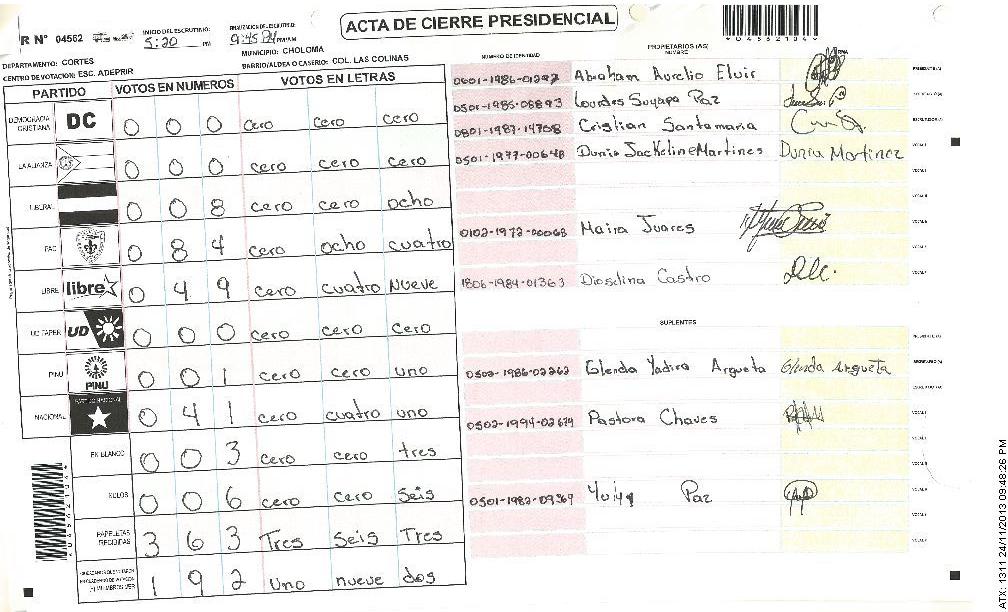 ACTA DE CIERRE PRESIDENCIAL
R Nº 04562
INICIO DEL ESCRUTINIO: 5:20 PM
FINALIZACION DEL ESCRUTINIO: 9:45 PM/AM
DEPARTAMENTO: CORTES
MUNICIPIO: CHOLOMA
CENTRO DE VOTACION: ESC. ADEPRIR
BARRIO/ALDEA O CASERIO: COL. LAS COLINAS
PARTIDO VOTOS EN NUMEROS VOTOS EN LETRAS
DEMOCRACIA CRISTIANA DC 0 0 0 cero cero cero
LA ALIANZA 0 0 0 cero cero cero
LIBERAL 0 0 8 cero cero ocho
PAC 0 8 4 cero ocho cuatro
LIBRE libre 0 4 9 cero cuatro Nueve
UD FAPER UD 0 0 0 cero cero cero
PINU PINU 0 0 1 cero cero uno
NACIONAL PARTIDO NACIONAL 0 4 1 cero cuatro uno
EN BLANCO 0 0 3 cero cero tres
NULOS 0 0 6 cero cero seis
PAPELETAS RECIBIDAS 3 6 3 Tres seis Tres
1 9 2 uno nueve dos
NUMERO DE IDENTIDAD
PROPIETARIOS (AS)
NOMBRE
FIRMA
0601-1986-01297 Abraham Aurelio Elvir PRESIDENTE (A)
0501-1985-08893 Lourdes Suyapa Paz SECRETARIO (A)
0801-1987-14708 Cristian Santamaria ESCRUTADOR (A)
0501-1977-00648 Dunia Jackeline Martines Dunia Martinez VOCAL I
0102-1972-00068 Maira Juares
1806-1984-01363 Dioselina Castro
SUPLENTES
PRESIDENTE (A)
0502-1986-02262 Glenda Yadira Argueta Glenda Argueta SECRETARIO (A)
ESCRUTADOR (A)
0502-1994-02679 Pastora Chaves VOCAL I
0501-1982-09369 Paz
*04562104*
*04562104*
ATX: 1311 24/11/2013 09:48:26 PM